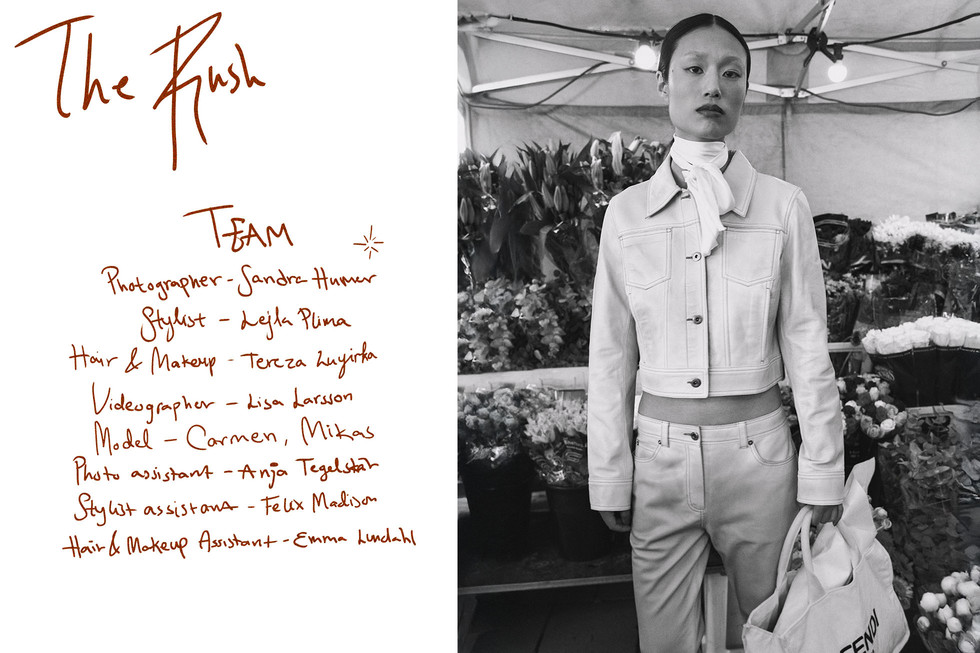 The Rush
TEAM
Photographer - Sandra Humer
Stylist - Lejla Plima
Hair & Makeup - Tereza
Videographer - Lisa Larsson
Model - Carmen, Mikas
Photo assistant - Anja Tegelstär
Stylist assistant - Felix Madison
Hair & Makeup Assistant - Emma Lundahl
FENDI